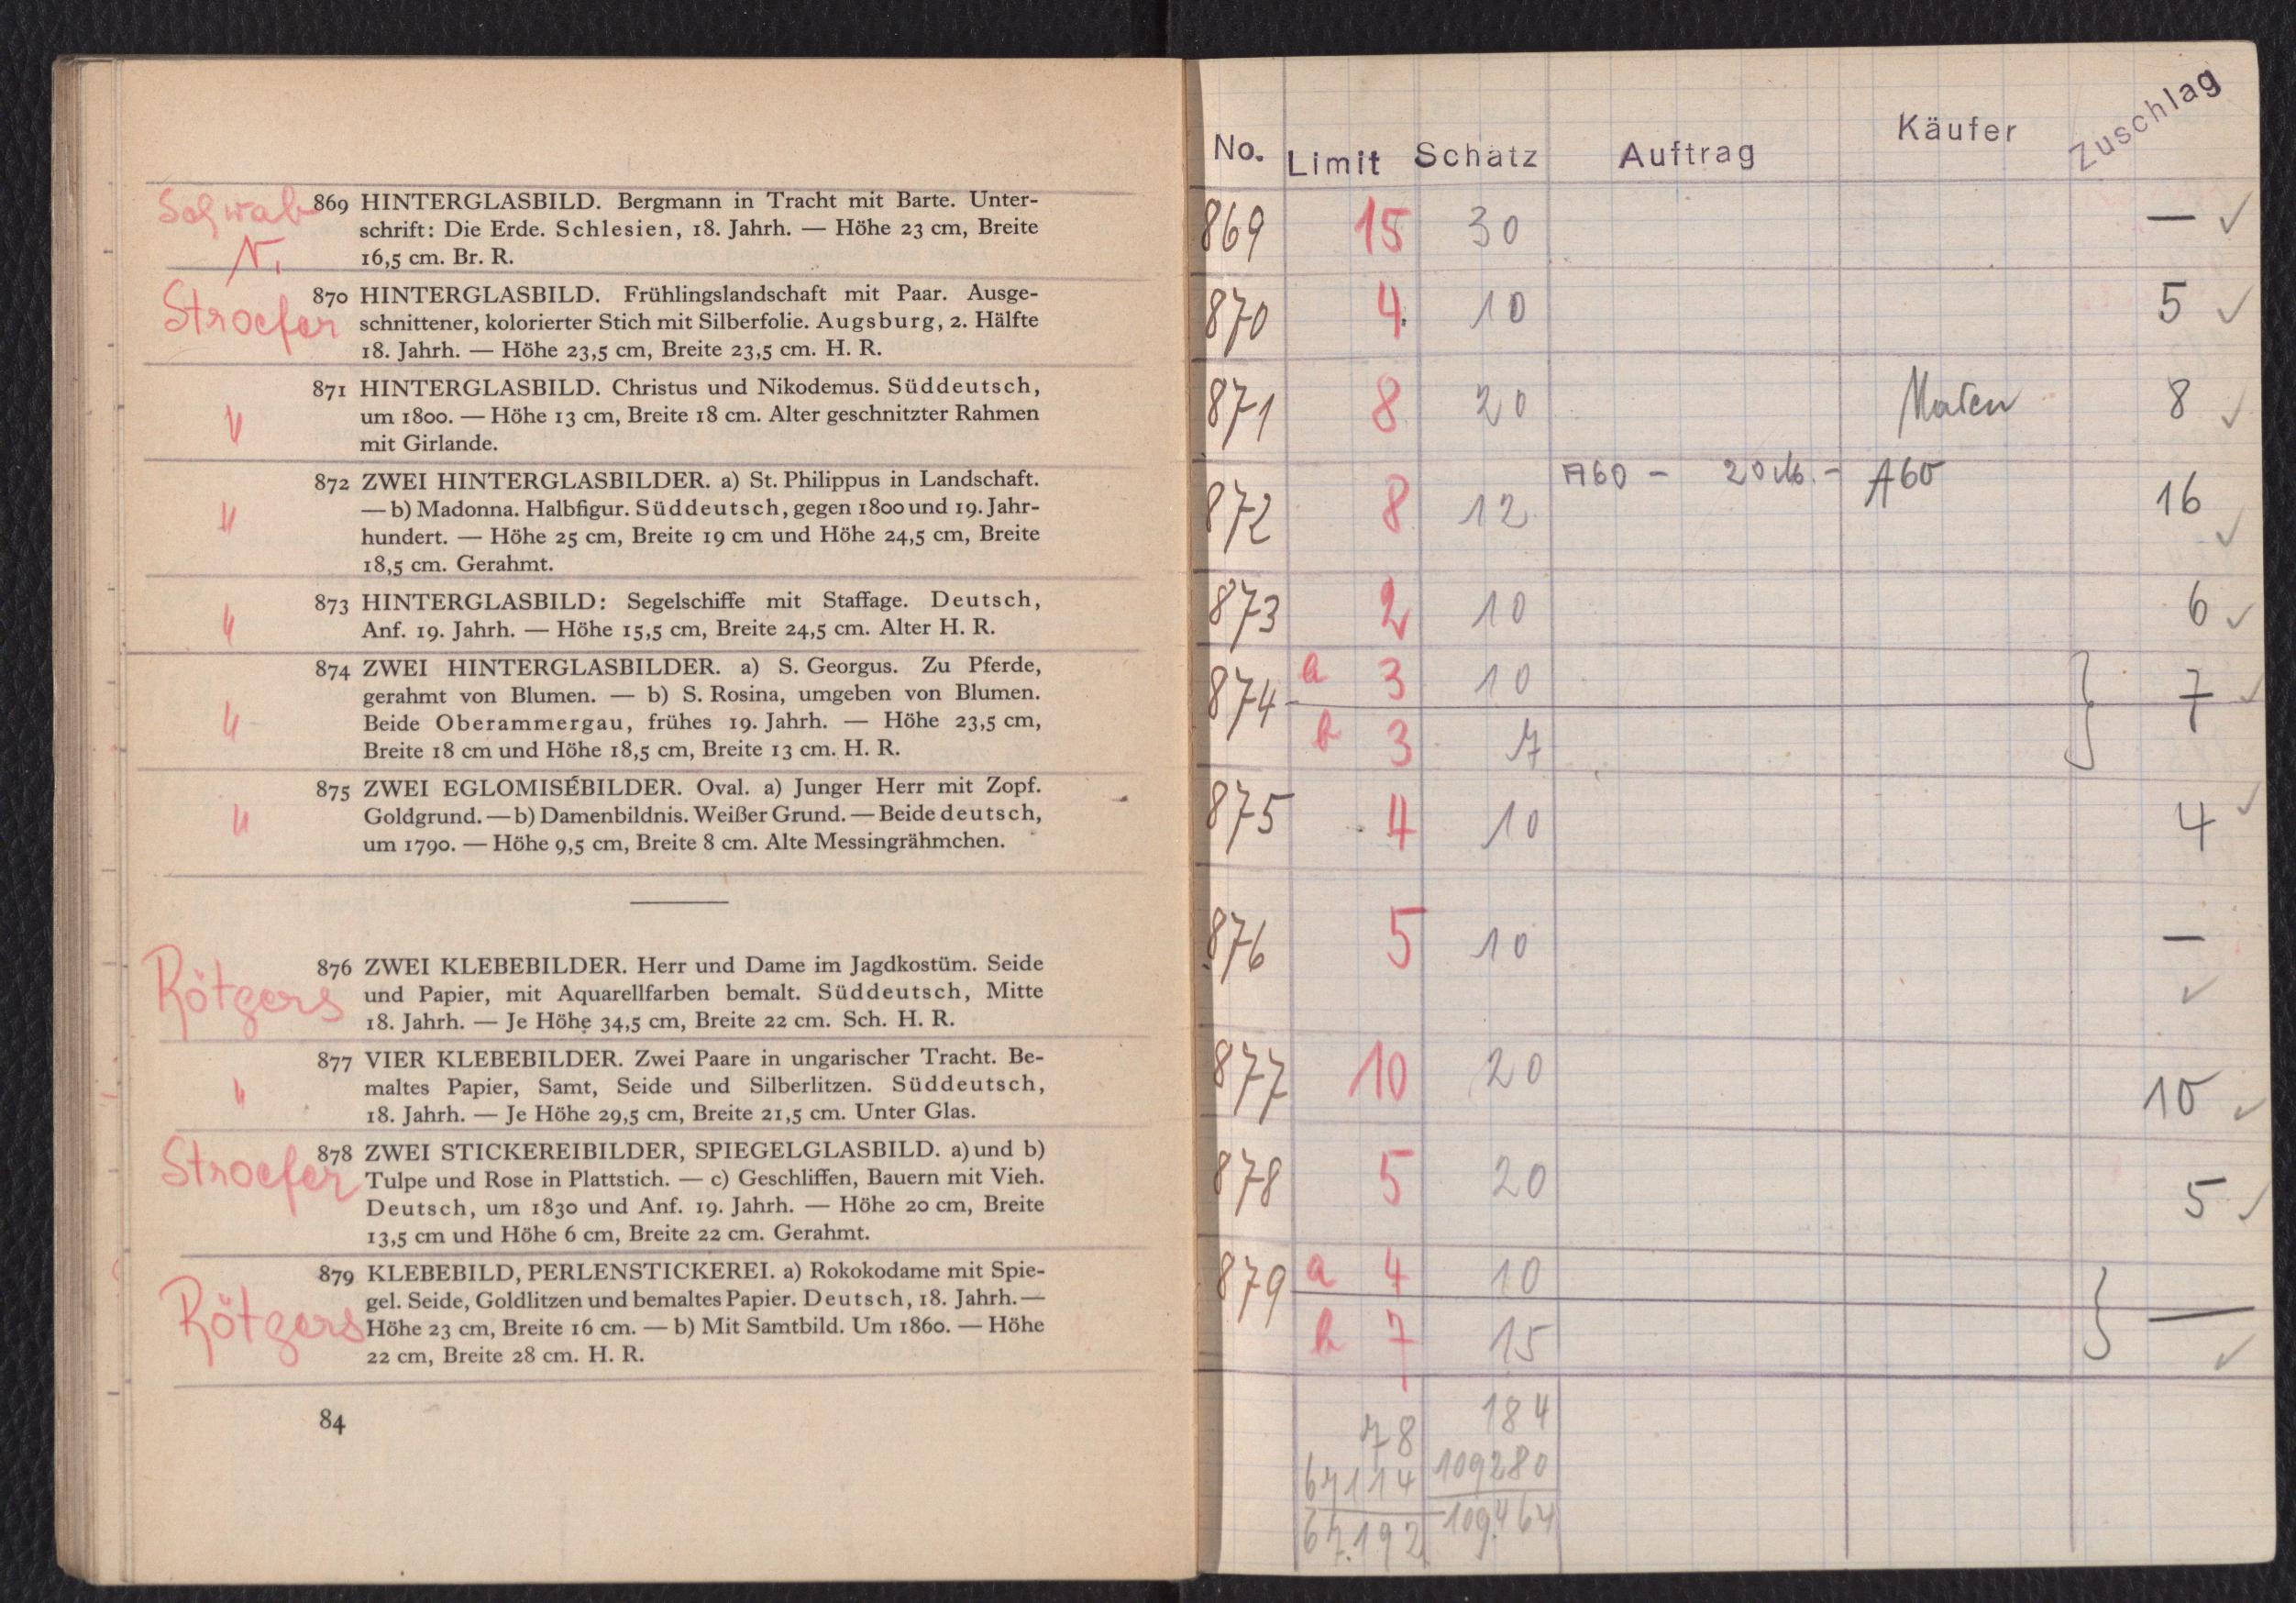 Schwab
N.
869 HINTERGLASBILD. Bergmann in Tracht mit Barte. Unter-
schrift: Die Erde. Schlesien, 18. Jahrh. — Höhe 23 cm, Breite
16,5 cm. Br. R.
Stroefer
870 HINTERGLASBILD. Frühlingslandschaft mit Paar. Ausge-
schnittener, kolorierter Stich mit Silberfolie. Augsburg, 2. Hälfte
18. Jahrh. — Höhe 23,5 cm, Breite 23,5 cm. H. R.
"
871 HINTERGLASBILD. Christus und Nikodemus. Süddeutsch,
um 1800. — Höhe 13 cm, Breite 18 cm. Alter geschnitzter Rahmen
mit Girlande.
"
872 ZWEI HINTERGLASBILDER. a) St. Philippus in Landschaft.
— b) Madonna. Halbfigur. Süddeutsch, gegen 1800 und 19. Jahr-
hundert. — Höhe 25 cm, Breite 19 cm und Höhe 24,5 cm, Breite
18,5 cm. Gerahmt.
"
873 HINTERGLASBILD: Segelschiffe mit Staffage. Deutsch,
Anf. 19. Jahrh. — Höhe 15,5 cm, Breite 24,5 cm. Alter H. R.
"
874 ZWEI HINTERGLASBILDER. a) S. Georgus. Zu Pferde,
gerahmt von Blumen. — b) S. Rosina, umgeben von Blumen.
Beide Oberammergau, frühes 19. Jahrh. — Höhe 23,5 cm,
Breite 18 cm und Höhe 18,5 cm, Breite 13 cm. H. R.
"
875 ZWEI EGLOMISÉBILDER. Oval. a) Junger Herr mit Zopf.
Goldgrund. — b) Damenbildnis. Weißer Grund. — Beide deutsch,
um 1790. — Höhe 9,5 cm, Breite 8 cm. Alte Messingrähmchen.
Rötgers
876 ZWEI KLEBEBILDER. Herr und Dame im Jagdkostüm. Seide
und Papier, mit Aquarellfarben bemalt. Süddeutsch, Mitte
18. Jahrh. — Je Höhe 34,5 cm, Breite 22 cm. Sch. H. R.
"
877 VIER KLEBEBILDER. Zwei Paare in ungarischer Tracht. Be-
maltes Papier, Samt, Seide und Silberlitzen. Süddeutsch,
18. Jahrh. — Je Höhe 29,5 cm, Breite 21,5 cm. Unter Glas.
Stroefer
878 ZWEI STICKEREIBILDER, SPIEGELGLASBILD. a) und b)
Tulpe und Rose in Plattstich. — c) Geschliffen, Bauern mit Vieh.
Deutsch, um 1830 und Anf. 19. Jahrh. — Höhe 20 cm, Breite
13,5 cm und Höhe 6 cm, Breite 22 cm. Gerahmt.
Rötgers
879 KLEBEBILD, PERLENSTICKEREI. a) Rokokodame mit Spie-
gel. Seide, Goldlitzen und bemaltes Papier. Deutsch, 18. Jahrh. —
Höhe 23 cm, Breite 16 cm. — b) Mit Samtbild. Um 1860. — Höhe
22 cm, Breite 28 cm. H. R.
84
No. Limit Schätz Auftrag Käufer Zuschlag
869 15 30 — ✓
870 4. 10 5 ✓
871 8 20 8 ✓
872 8 12 A60 – 20 M. – A60 16 ✓
873 2 10 6 ✓
874 a 3 10 } 7 ✓
b 3 7
875 4 10 4 ✓
876 5 10 — ✓
877 10 20 10 ✓
878 5 20 5 ✓
879 a 4 10 } — ✓
b 7 15
78 184
67114 109280
67.192 109.464